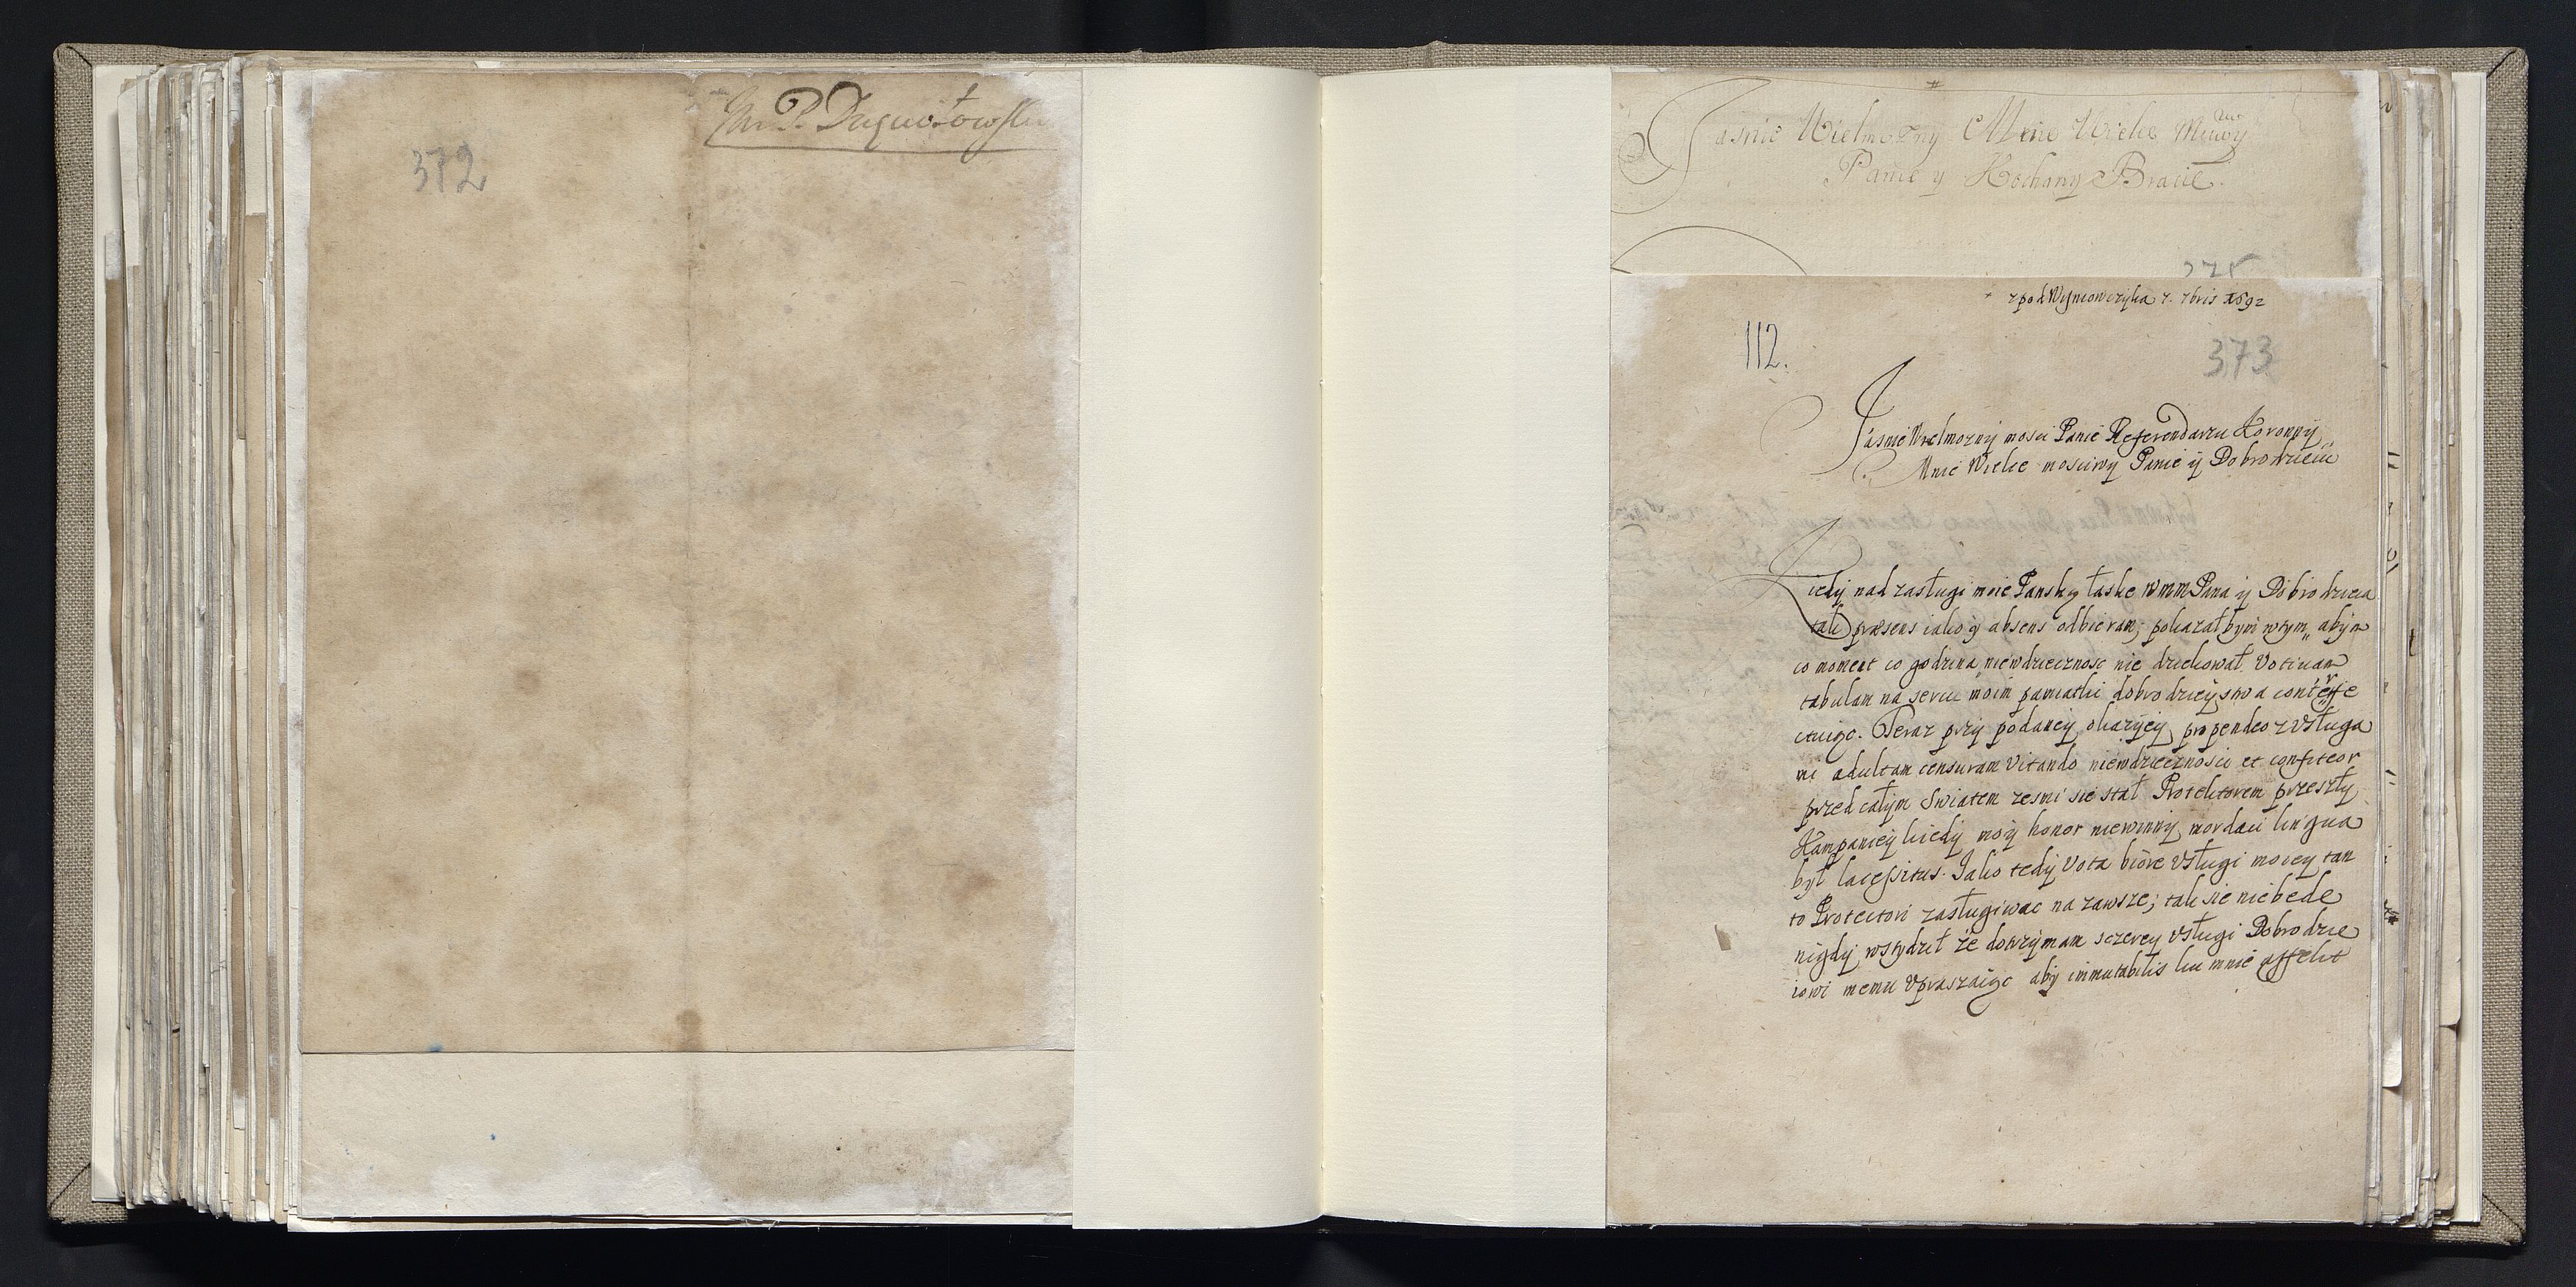 372
Jaśnie Wielmozny Mnie Wielce Mciwy
Panie y Kochany Bracie
zpod Wisniowczyka 7. 7bris 1692
112.
373
Jasnie Wielmozny mosci Panie Referendarzu Koronny
Mnie Wielce mosciwy Panie ÿ Dobrodzieiu
Kiedÿ nad zasługi moie Panską łaske WMMPana ÿ Dobrodzieia
tak præsens iako y absens odbieram; pokazałbym wtym abÿm
co moment co godzina niewdziecznosc nie dziekował. Votiuam
tabulam na sercu moim pamiatki dobrodzieÿstwa conterffe
ctuiąc. Teraz przÿ podaneÿ okazÿeÿ propendeo z Vsługa
mi adultam censuram Vitando niewdziecznosci et confiteor
przed całÿm Swiatem zesmi sie stał Protektorem przeszłÿ
Kampanieÿ kiedÿ moÿ honor niewinnÿ mordaci lingua
bÿł lacessitus. Jako tedÿ Vota biore Vsługi moiey tan
to Protectori zasługiwac na zawsze; tak sie niebede
nigdÿ wstÿdził że dotrzÿmam sczerey Vsługi Dobrodzie
iowi memu Vpraszaiąc abÿ immutabilis ku mnie affekt